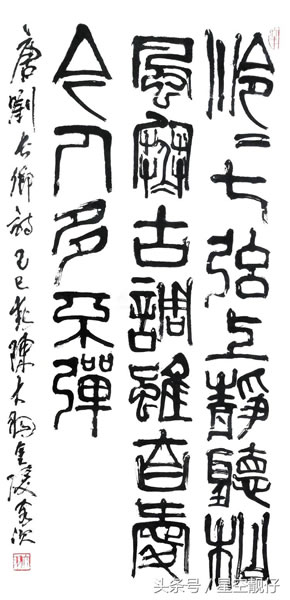 泠〻七弦上靜聽松
風寒古調雖自愛
今人多不彈
唐劉長卿詩 己巳秋陳大羽金陵客次
头条号/星空靓仔